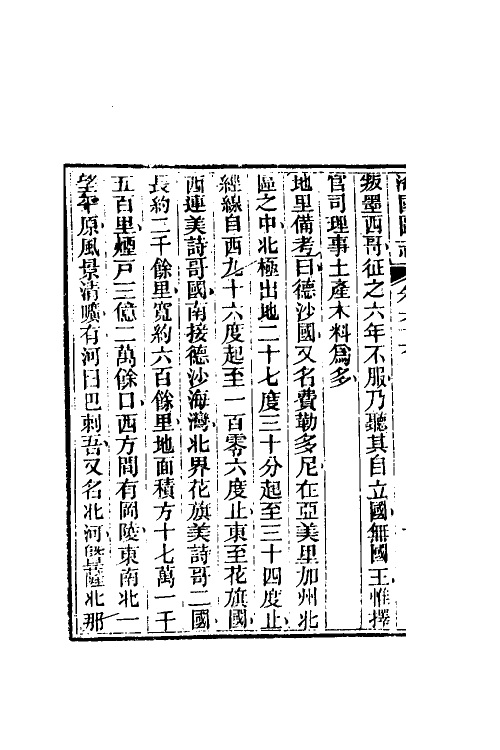 海國圖志 卷六十六
叛墨西哥征之六年不服乃聽其自立國無國王惟擇
官司理事土產木料爲多
地里備考曰德沙國又名費勒多尼在亞美里加州北
區之中北極出地二十七度三十分起至三十四度止
經線自西九十六度起至一百零六度止東至花旗國
西連美詩哥國南接德沙海灣北界花旗美詩哥二國
長約二千餘里寬約六百餘里地面積方十七萬一千
五百里煙戸三億二萬餘口西方間有岡陵東南北一
望平原風景清曠有河曰巴剌吾又名北河薩北那